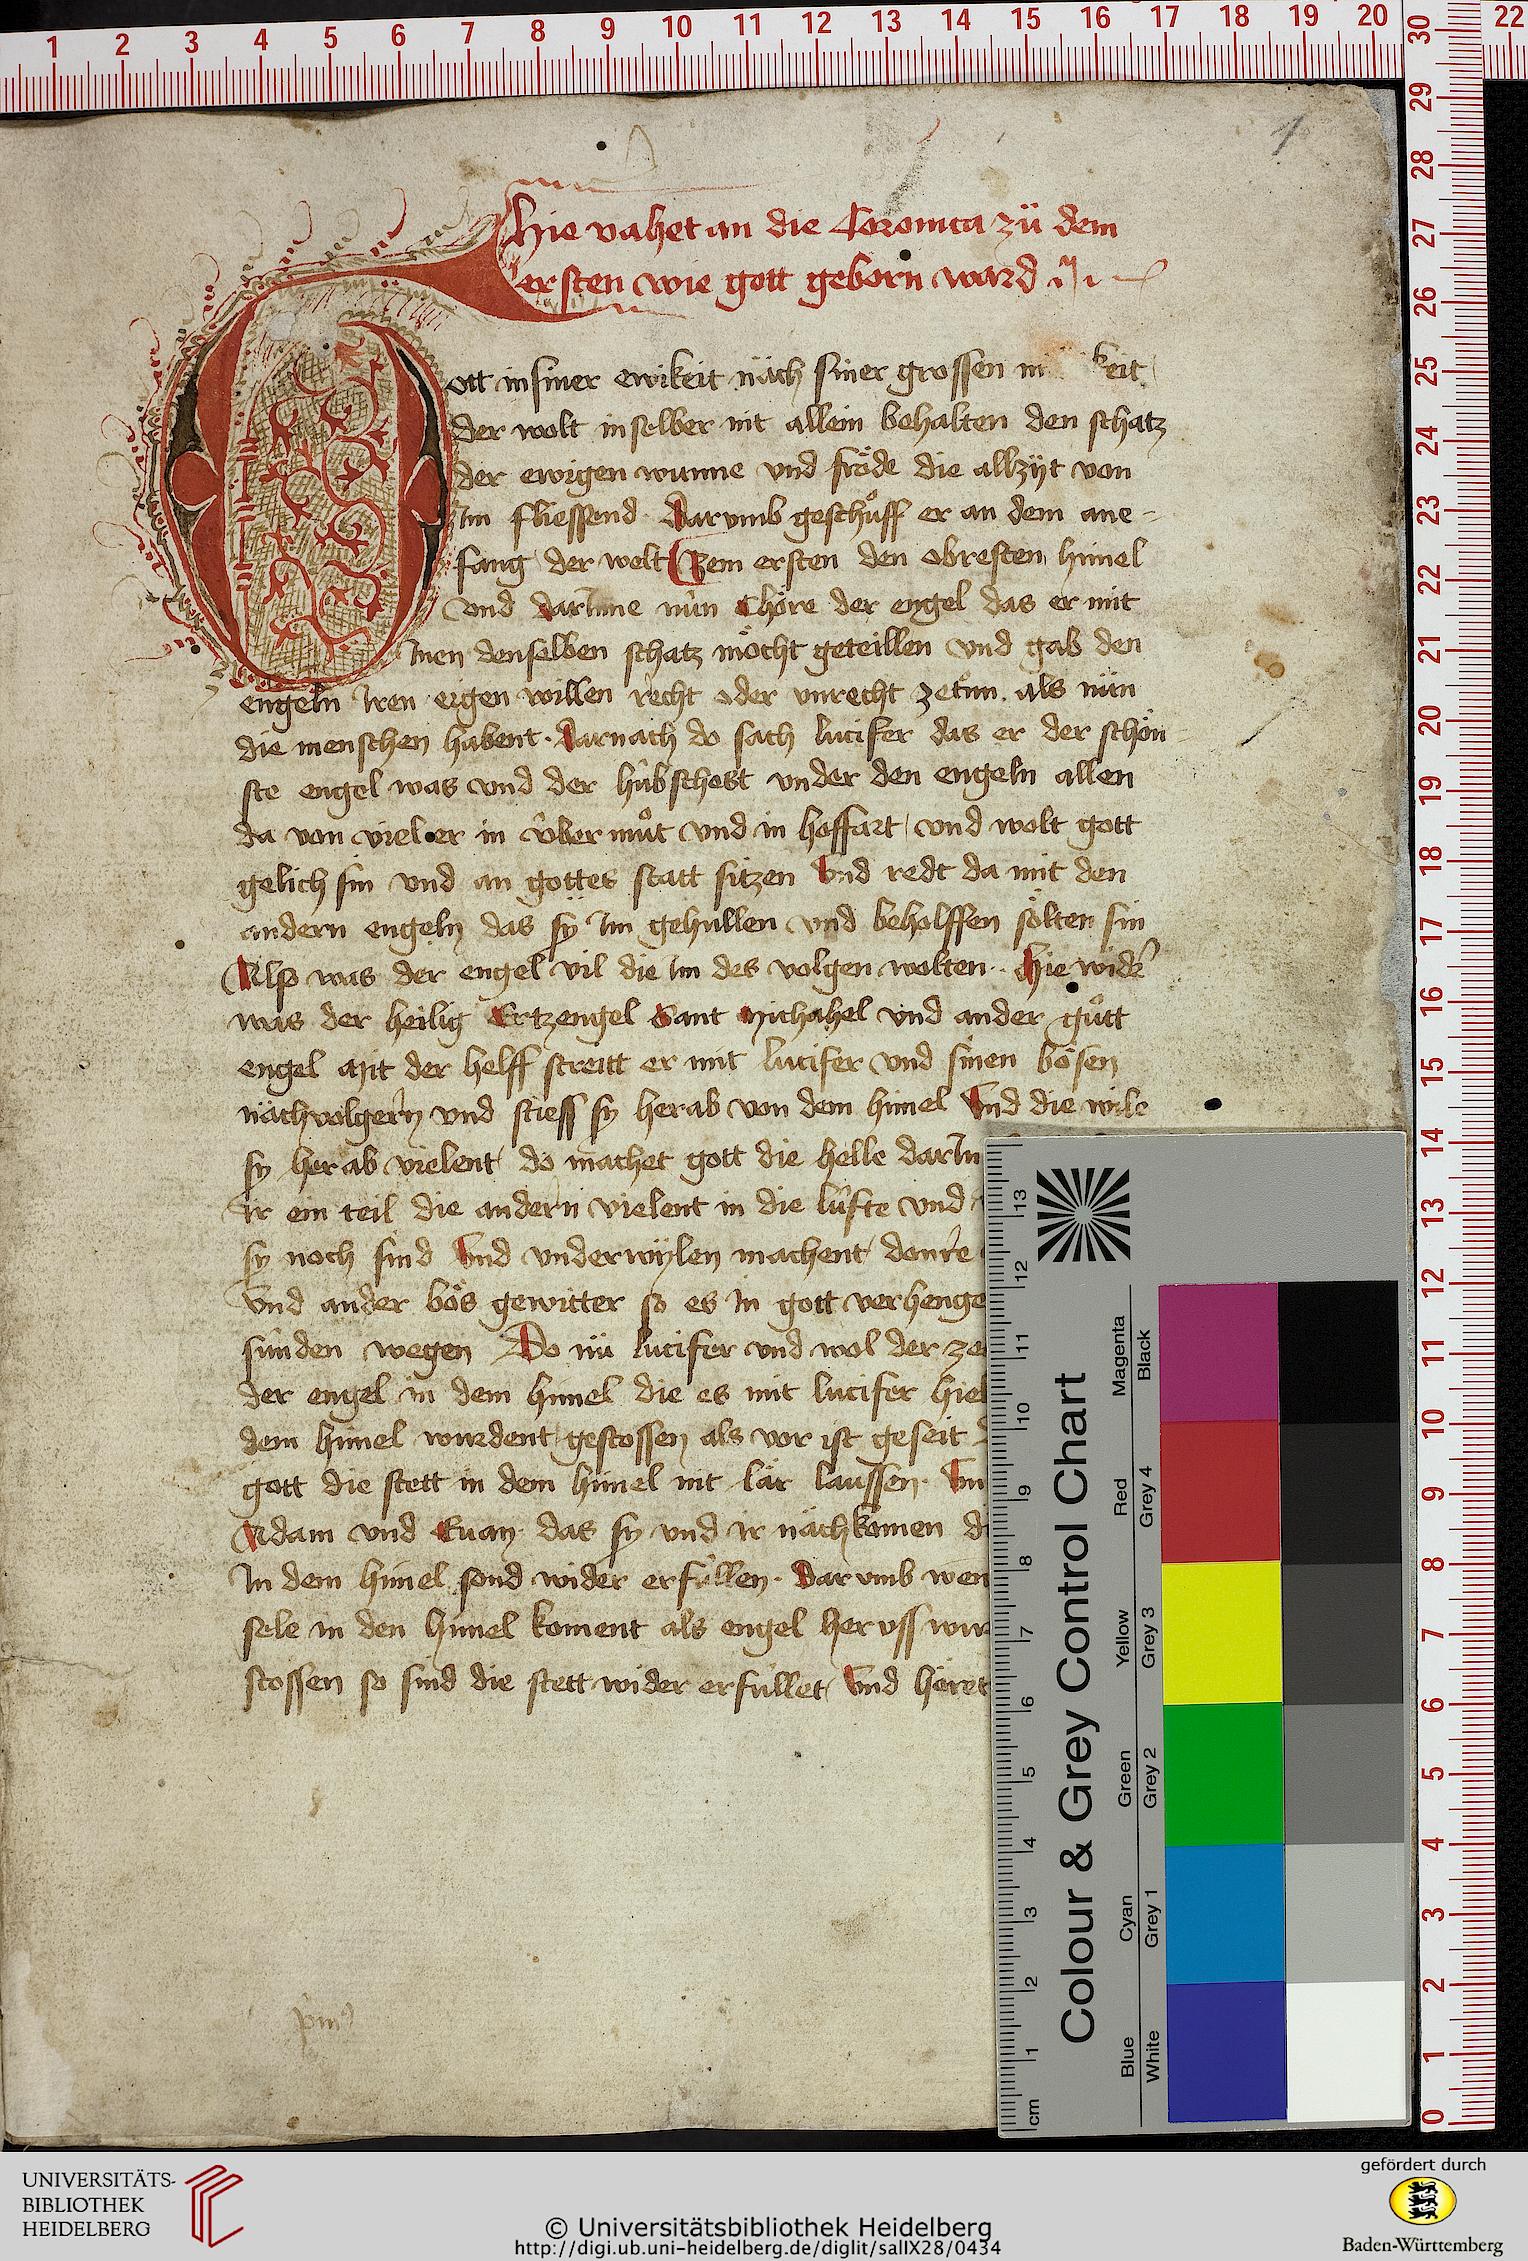 1
Hie vahet an die Coronica zü dem
ersten wie gott geborn ward
Gott in siner ewikeit näch siner grossen keit
der wolt in selber nit allein behalten den schatz
der ewigen wunne vnd fröde die allzyt von
Im fliessend. Darvmb geschůff er an dem ane-
fang der welt Zem ersten den obresten himel
vnd darInne nün Chöre der engel das er mit
Inen denselben schatz möcht geteillen vnd gab den
engeln Iren eigen willen recht oder vnrecht zetůnn. als nün
die menschen habent. Darnach do sach lucifer das er der schön
ste engel was vnd der hübschest vnder den engeln allen
da von viel er in über můt vnd in hoffart vnd wolt gott
gelich sin vnd an gottes statt sitzen Vnd redt da mit den
andern engeln das sÿ Im gehullen vnd beholffen sölten sin
Also was der engel vil die Im des volgen wolten. Hie wider
was der heilig Ertzengel Sant Michahel vnd ander gůtt
engel Mit der helff streitt er mit lucifer vnd sinen bösen
nächvolgern vnd stiess sy herab von dem himel Vnd die wile
sy herab vielent do machet gott die helle darIn
Ir ein teil die andern vielent in die lüfte vnd
sy noch sind Vnd vnderwÿlen machent donre
Vnd ander bös gewitter so es In gott verhenge
sünden wegen Do nü lucifer vnd wol der ze
der engel in dem himel die es mit lucifer hiel
dem himel wurdent gestossen als vor ist geseit
gott die stett in dem himel nit lär laussen. Vn
Adam vnd Euan. das sy vnd ir nächkomen di
In dem himel sond wider erfüllen. Darvmb wen
sele in den himel koment als engel her vss wur
stossen so sind die stett wider erfüllet Vnd höret
Colour & Grey Control Chart
Magenta Black
Red Grey 4
Yellow Grey 3
Green Grey 2
Cyan Grey 1
Blue White
cm 1 2 3 4 5 6 7 8 9 10 11 12 13
1 2 3 4 5 6 7 8 9 10 11 12 13 14 15 16 17 18 19 20 22
30 29 28 27 26 25 24 23 22 21 20 19 18 17 16 15 14 13 12 11 10 9 8 7 6 5 4 3 2 1 0
UNIVERSITÄTS-
BIBLIOTHEK
HEIDELBERG
© Universitätsbibliothek Heidelberg
http://digi.ub.uni-heidelberg.de/diglit/salIX28/0434
gefördert durch
Baden-Württemberg